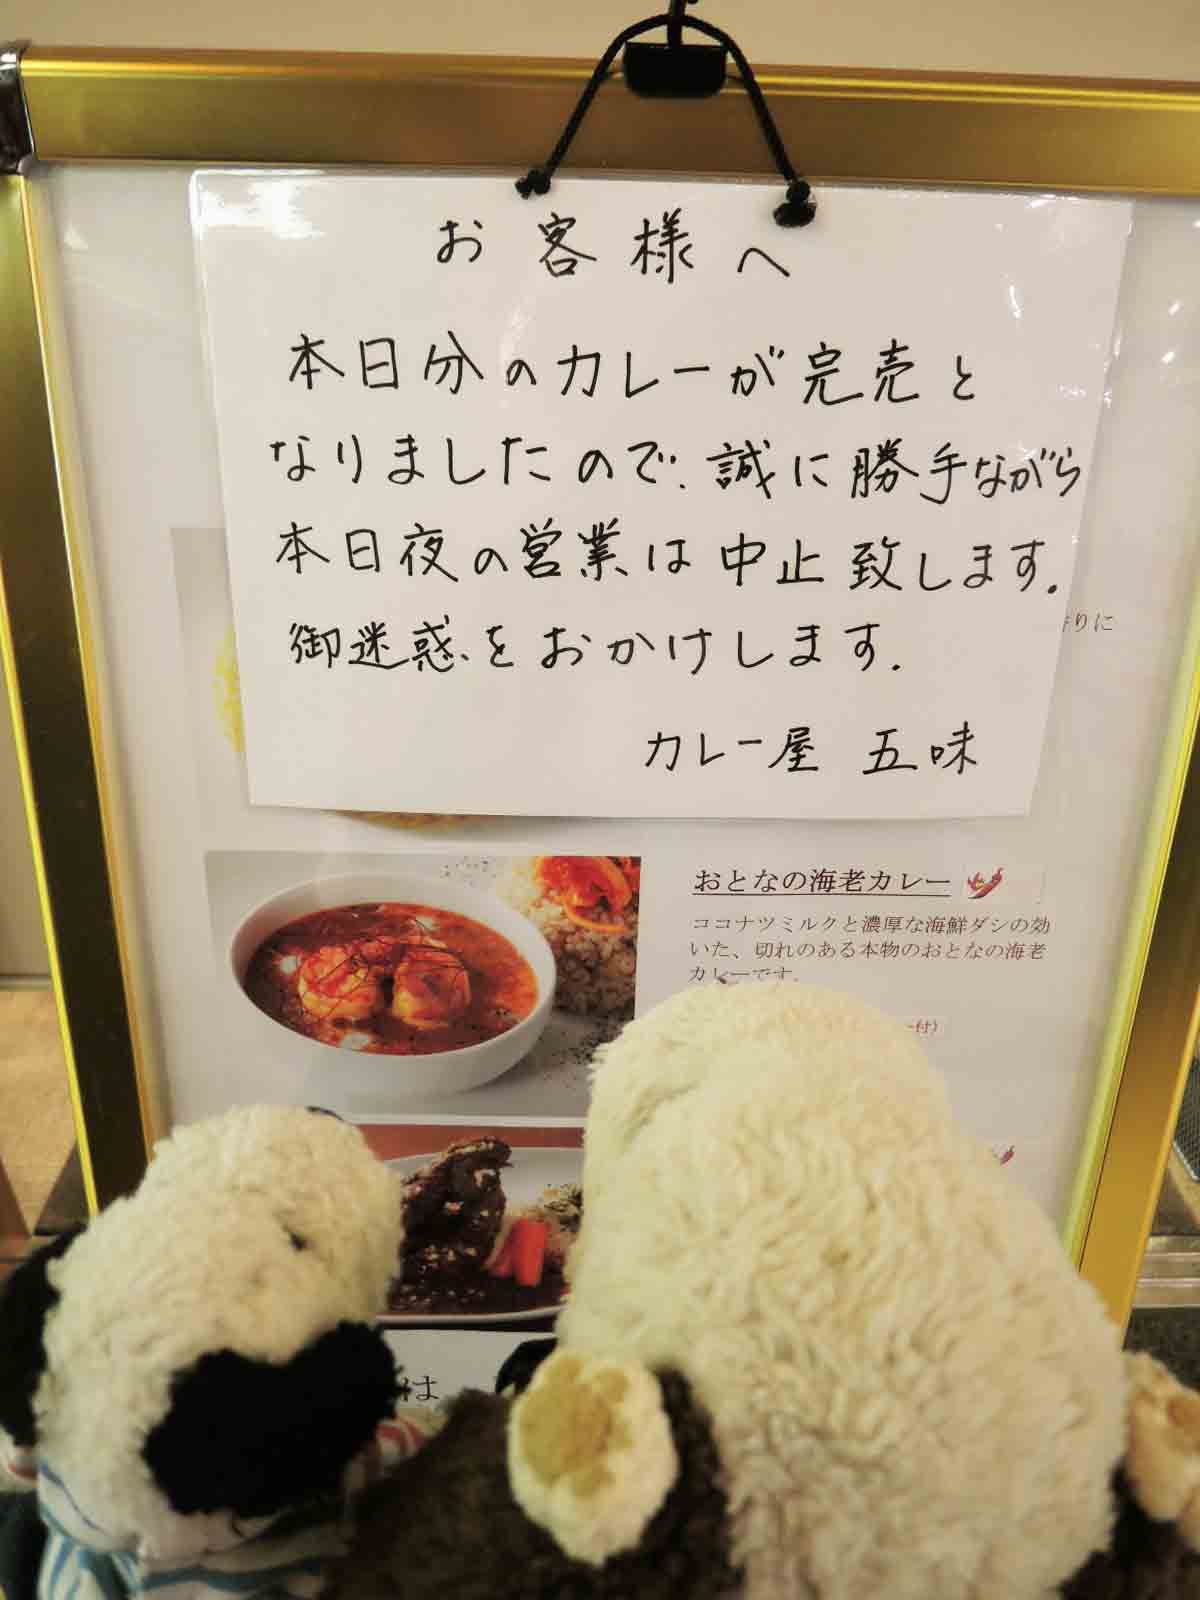 お客様へ
本日分のカレーが完売と
なりましたので、誠に勝手ながら
本日夜の営業は中止致します。
御迷惑をおかけします。
カレー屋 五味
りに
おとなの海老カレー
ココナツミルクと濃厚な海鮮ダシの効
いた、切れのある本物のおとなの海老
カレーです。
付)
は